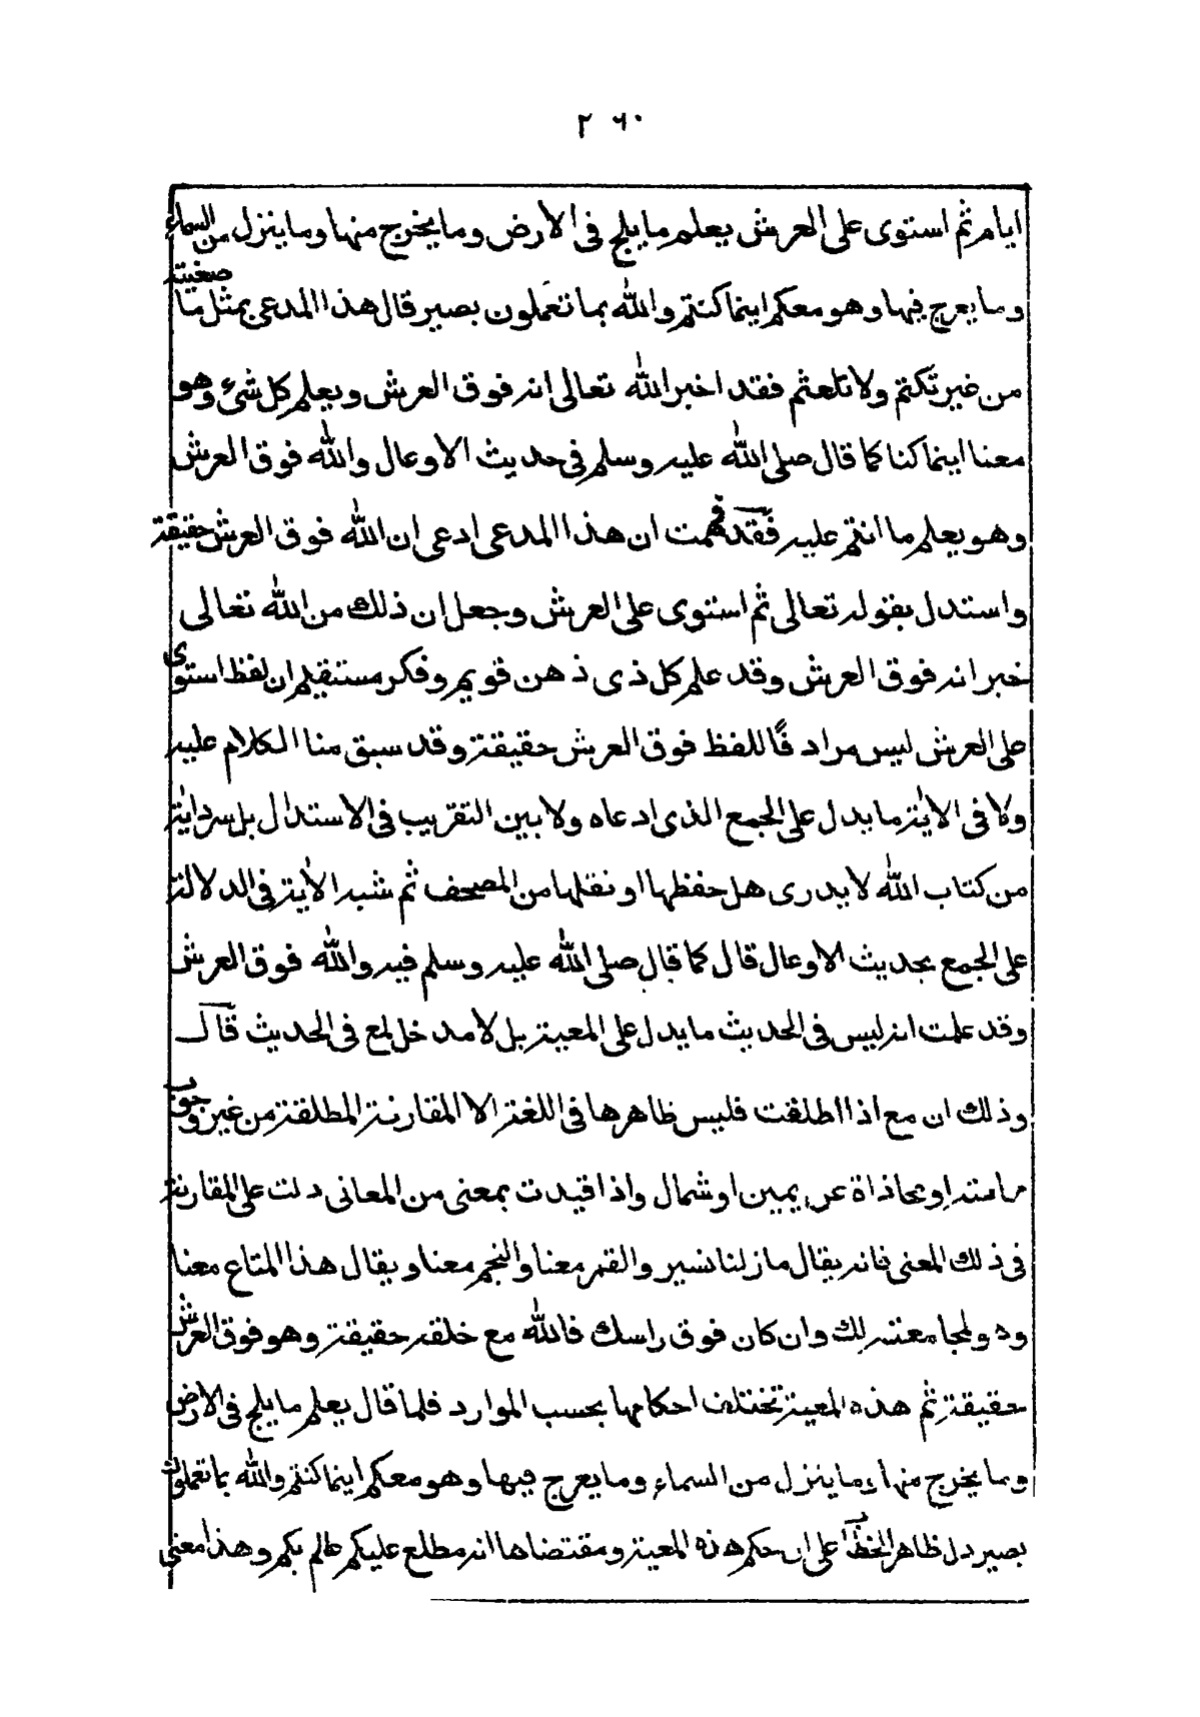 ٢٦٠
ايام ثم استوى على العرش يعلم ما يلج فى الارض وما يخرج منها وما ينزل من السماء
وما يعرج فيها وهو معكم اينما كنتم والله بما تعملون بصير قال هذا المدعى بمثل ما صغيته
من غير تكتم ولا تلعثم فقد اخبر الله تعالى انه فوق العرش ويعلم كل شئ وهو
معنا اينما كنا كما قال صلى الله عليه وسلم فى حديث الاوعال والله فوق العرش
وهو يعلم ما انتم عليه فقد فهمت ان هذا المدعى ادعى ان الله فوق العرش حقيقة
واستدل بقوله تعالى ثم استوى على العرش وجعل ان ذلك من الله تعالى
خبر انه فوق العرش وقد علم كل ذى ذهن قويم وفكر مستقيم ان لفظ استوى
على العرش ليس مرادفًا للفظ فوق العرش حقيقة وقد سبق منا الكلام عليه
ولا فى الاية ما يدل على الجمع الذى ادعاه ولا بين التقريب فى الاستدلال بل سرد اية
من كتاب الله لا يدرى هل حفظها او نقلها من المصحف ثم شبه الاية فى الدلالة
على الجمع بحديث الاوعال قال كما قال صلى الله عليه وسلم فيه والله فوق العرش
وقد علمت انه ليس فى الحديث ما يدل على المعية بل لا مدخل لمع فى الحديث قال
وذلك ان مع اذا اطلقت فليس ظاهرها فى اللغة الا المقارنة المطلقة من غير وجوب
مماسة او محاذاة عن يمين او شمال واذا قيدت بمعنى من المعانى دلت على المقارنة
فى ذلك المعنى فانه يقال ما زلنا نسير والقمر معنا والنجم معنا ويقال هذا المتاع معنا
وهو لمجامعته لك وان كان فوق راسك فالله مع خلقه حقيقة وهو فوق العرش
حقيقة ثم هذه المعية تختلف احكامها بحسب الموارد فلما قال يعلم ما يلج فى الارض
وما يخرج منها وما ينزل من السماء وما يعرج فيها وهو معكم اينما كنتم والله بما تعملون
بصير دل ظاهر الخطاب على ان حكم هذه المعية ومقتضاها انه مطلع عليكم عالم بكم وهذا معنى